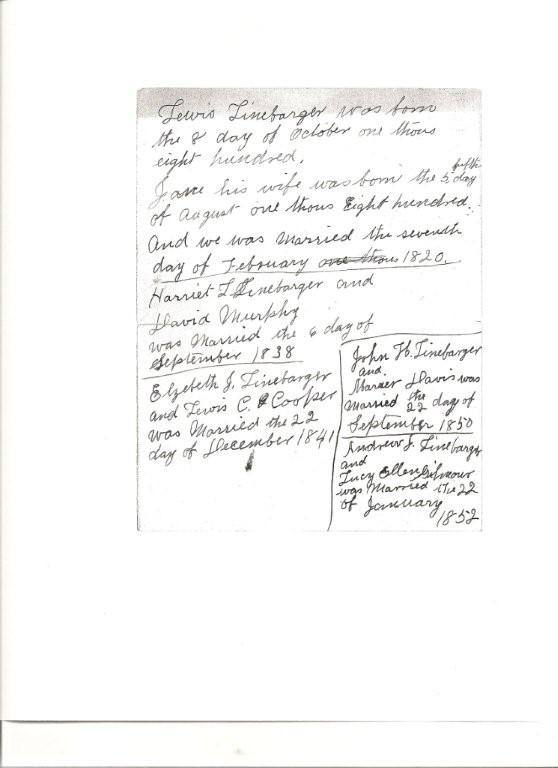 Lewis Linebarger was born
the 8 day of October one thous
eight hundred.
Jane his wife was born the 5, fifth day
of August one thous Eight hundred.
And we was Married the seventh
day of February one thous 1820.
Harriet L Linebarger and
David Murphy
was Married the 6 day of
September 1838
Elzebeth J. Linebarger
and Lewis C. Cooper
was Married the 22
day of December 1841
John H. Linebarger
and
Davis was
Married the
22 day of
September 1850
Andrew J. Linebarger
and
Lucy Ellen Gilmour
was Married the 22
of January
1852